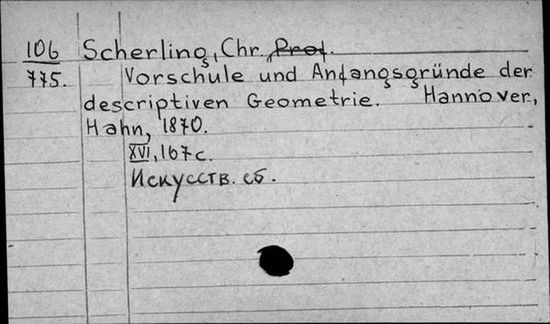 106 Scherling, Chr., Prof.
775. Vorschule und Anfangsgründe der
descriptiven Geometrie. Hannover,
Hahn, 1870.
XVI, 167 с.
Искусств. сб.